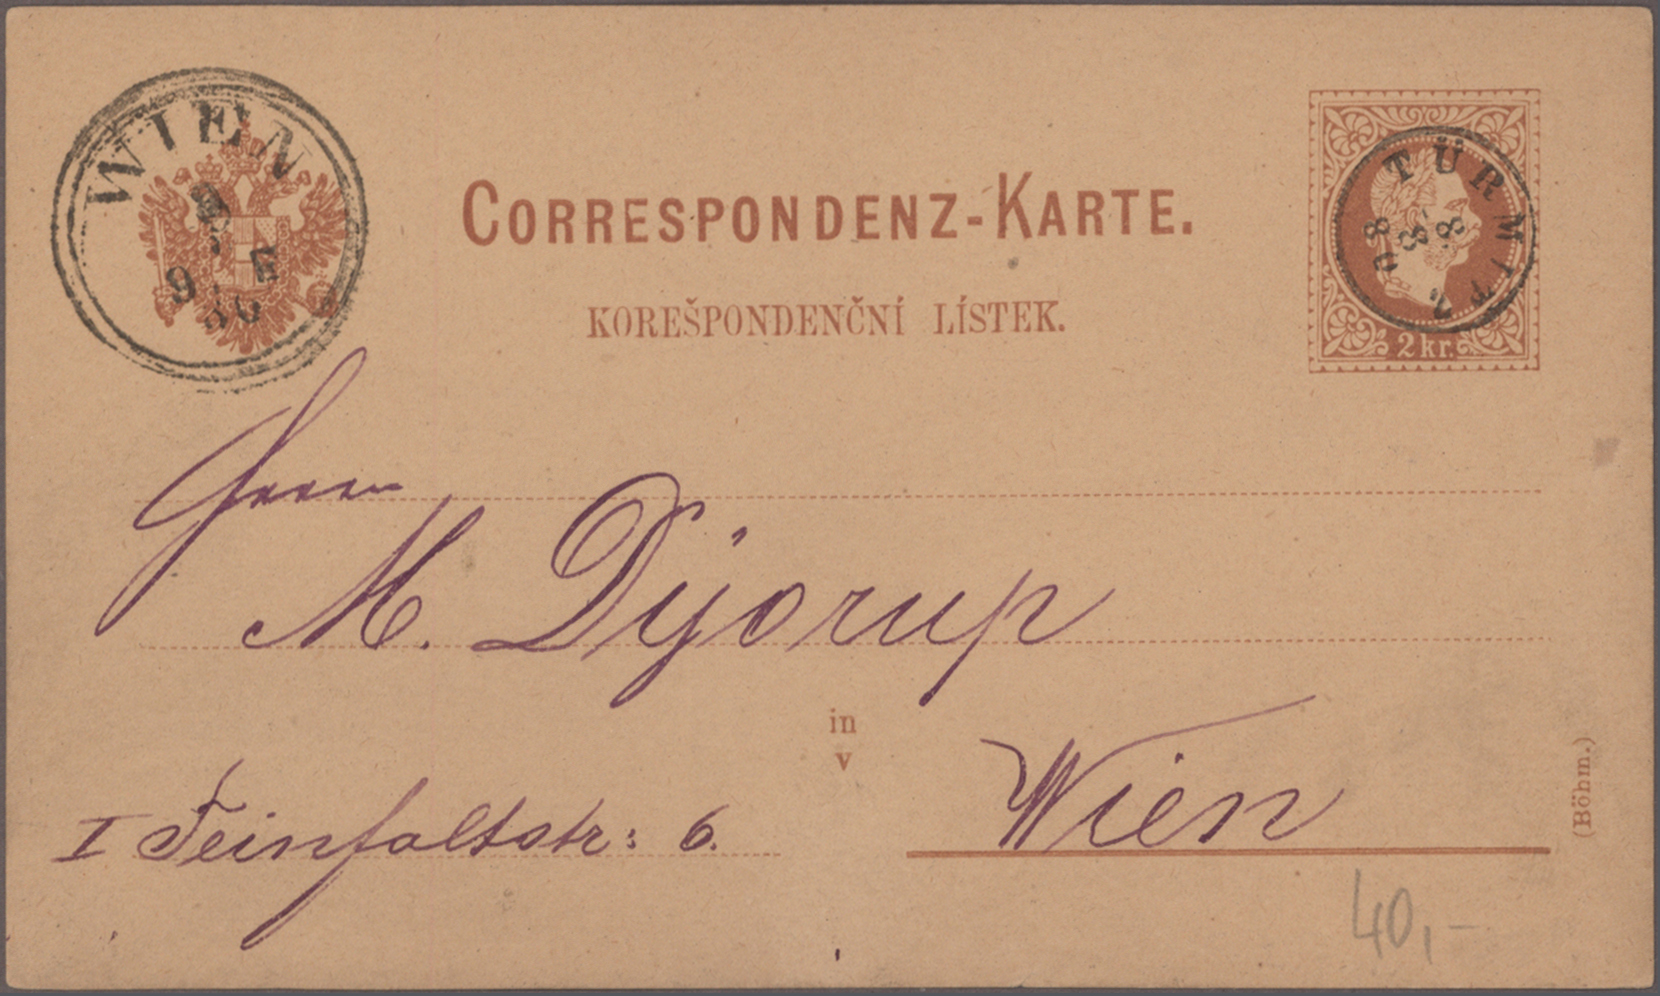 WIEN
9 E
80
CORRESPONDENZ-KARTE.
KOREŠPONDENČNÍ LÍSTEK.
TÜRMITZ
8 8 80
2 kr.
Herrn
M. Dÿorup
in
v
Wien
I Teinfaltstr: 6.
(Böhm.)
40,-